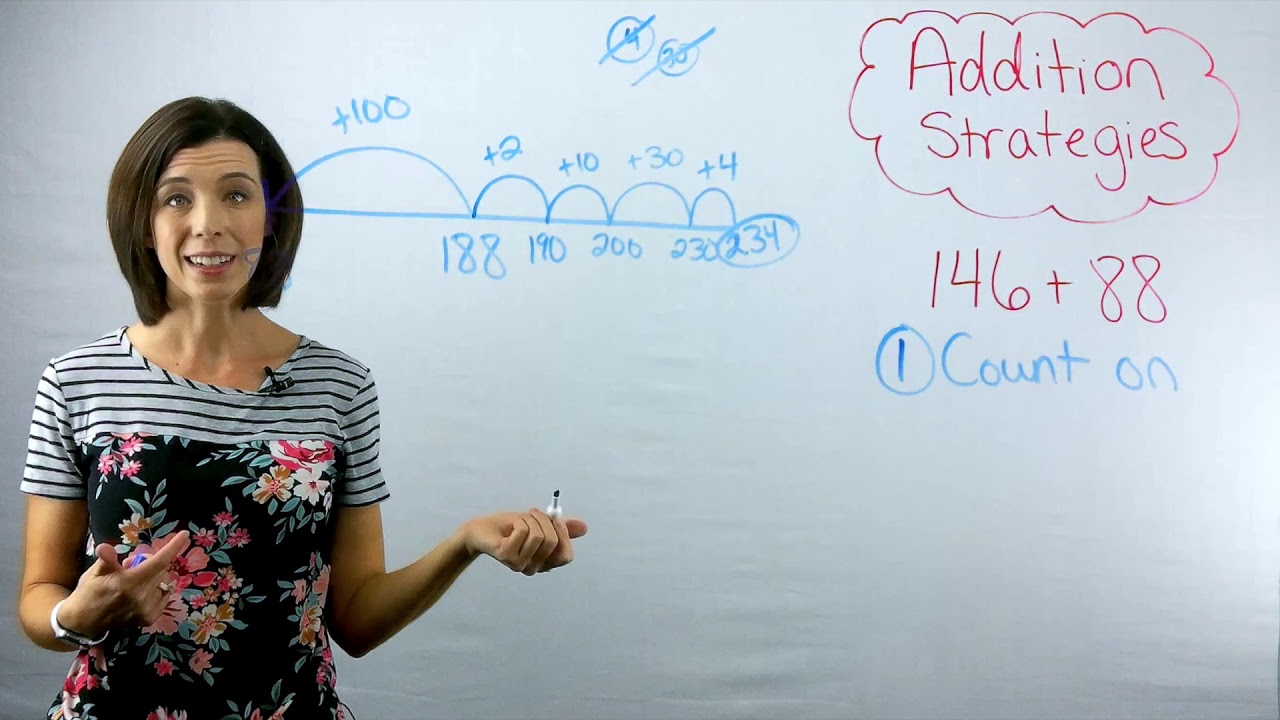 +100
+2
+10
+30
+4
188
190
200
230
234
Addition
Strategies
146 + 88
① Count on